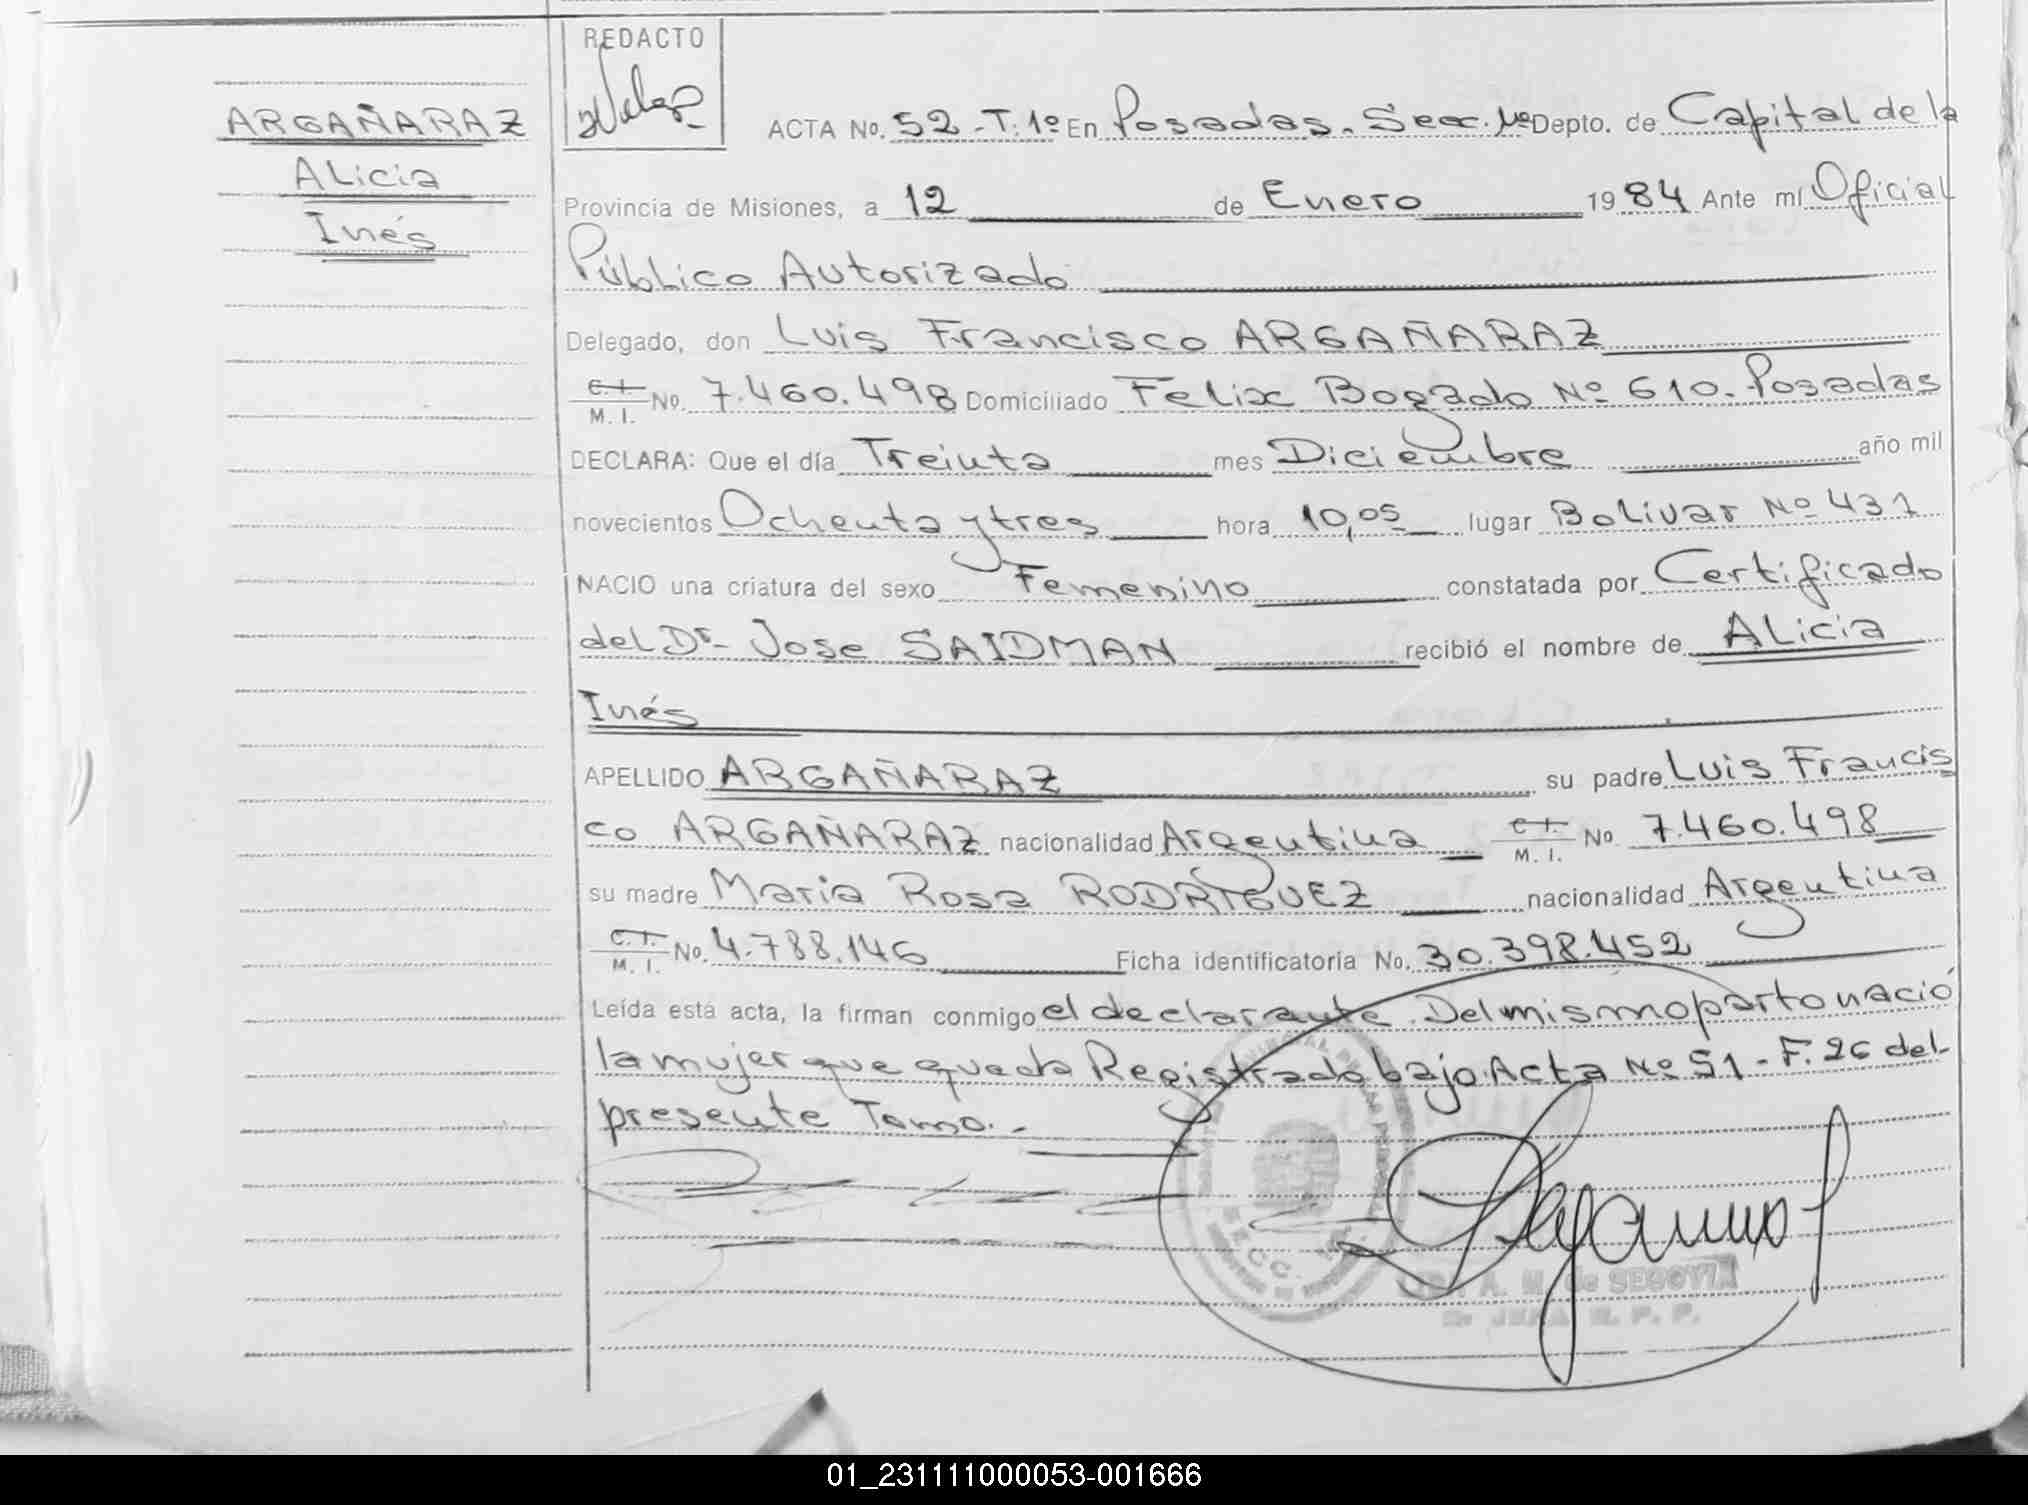 REDACTO
ARGAÑARAZ
Alicia
Inés
ACTA No. 52-T.1º En Posadas. Secc. Depto. de Capital de la
Provincia de Misiones, a 12 de Enero 1984 Ante mí Oficial
Público Autorizado
Delegado, don Luis Francisco ARGAÑARAZ
C.I. M. I. No. 7.460.498 Domiciliado Felix Bogado Nº 610. Posadas
DECLARA: Que el día Treinta mes Diciembre año mil
novecientos Ochenta y tres hora 10,05 lugar Bolivar Nº 431
NACIO una criatura del sexo Femenino constatada por Certificado
del Dr- Jose SAIDMAN recibió el nombre de Alicia
Inés
APELLIDO ARGAÑARAZ su padre Luis Francis
co ARGAÑARAZ nacionalidad Argentina C.I. M. I. No. 7.460.498
su madre Maria Rosa RODRIGUEZ nacionalidad Argentina
C.I. M. I. No. 4.788.146 Ficha identificatoria No. 30.398.452
Leída esta acta, la firman conmigo el declarante. Del mismo parto nació
la mujer que queda Registrado bajo Acta Nº 51-F. 26 del
presente Tomo.-
A. M. de SEGOVIA
01_231111000053-001666